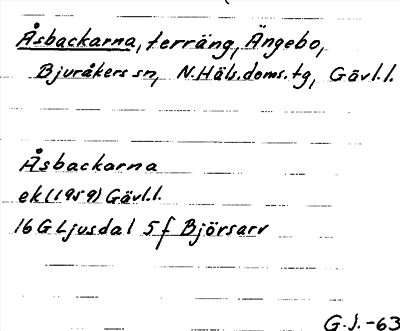 Åsbackarna, terräng, Ängebo,
Bjuråkers sn, N.Häls.doms.tg, Gävl.l.
Åsbackarna
ek (1959) Gävl.l.
16 G Ljusdal 5 f Björsarv
G.J.-63